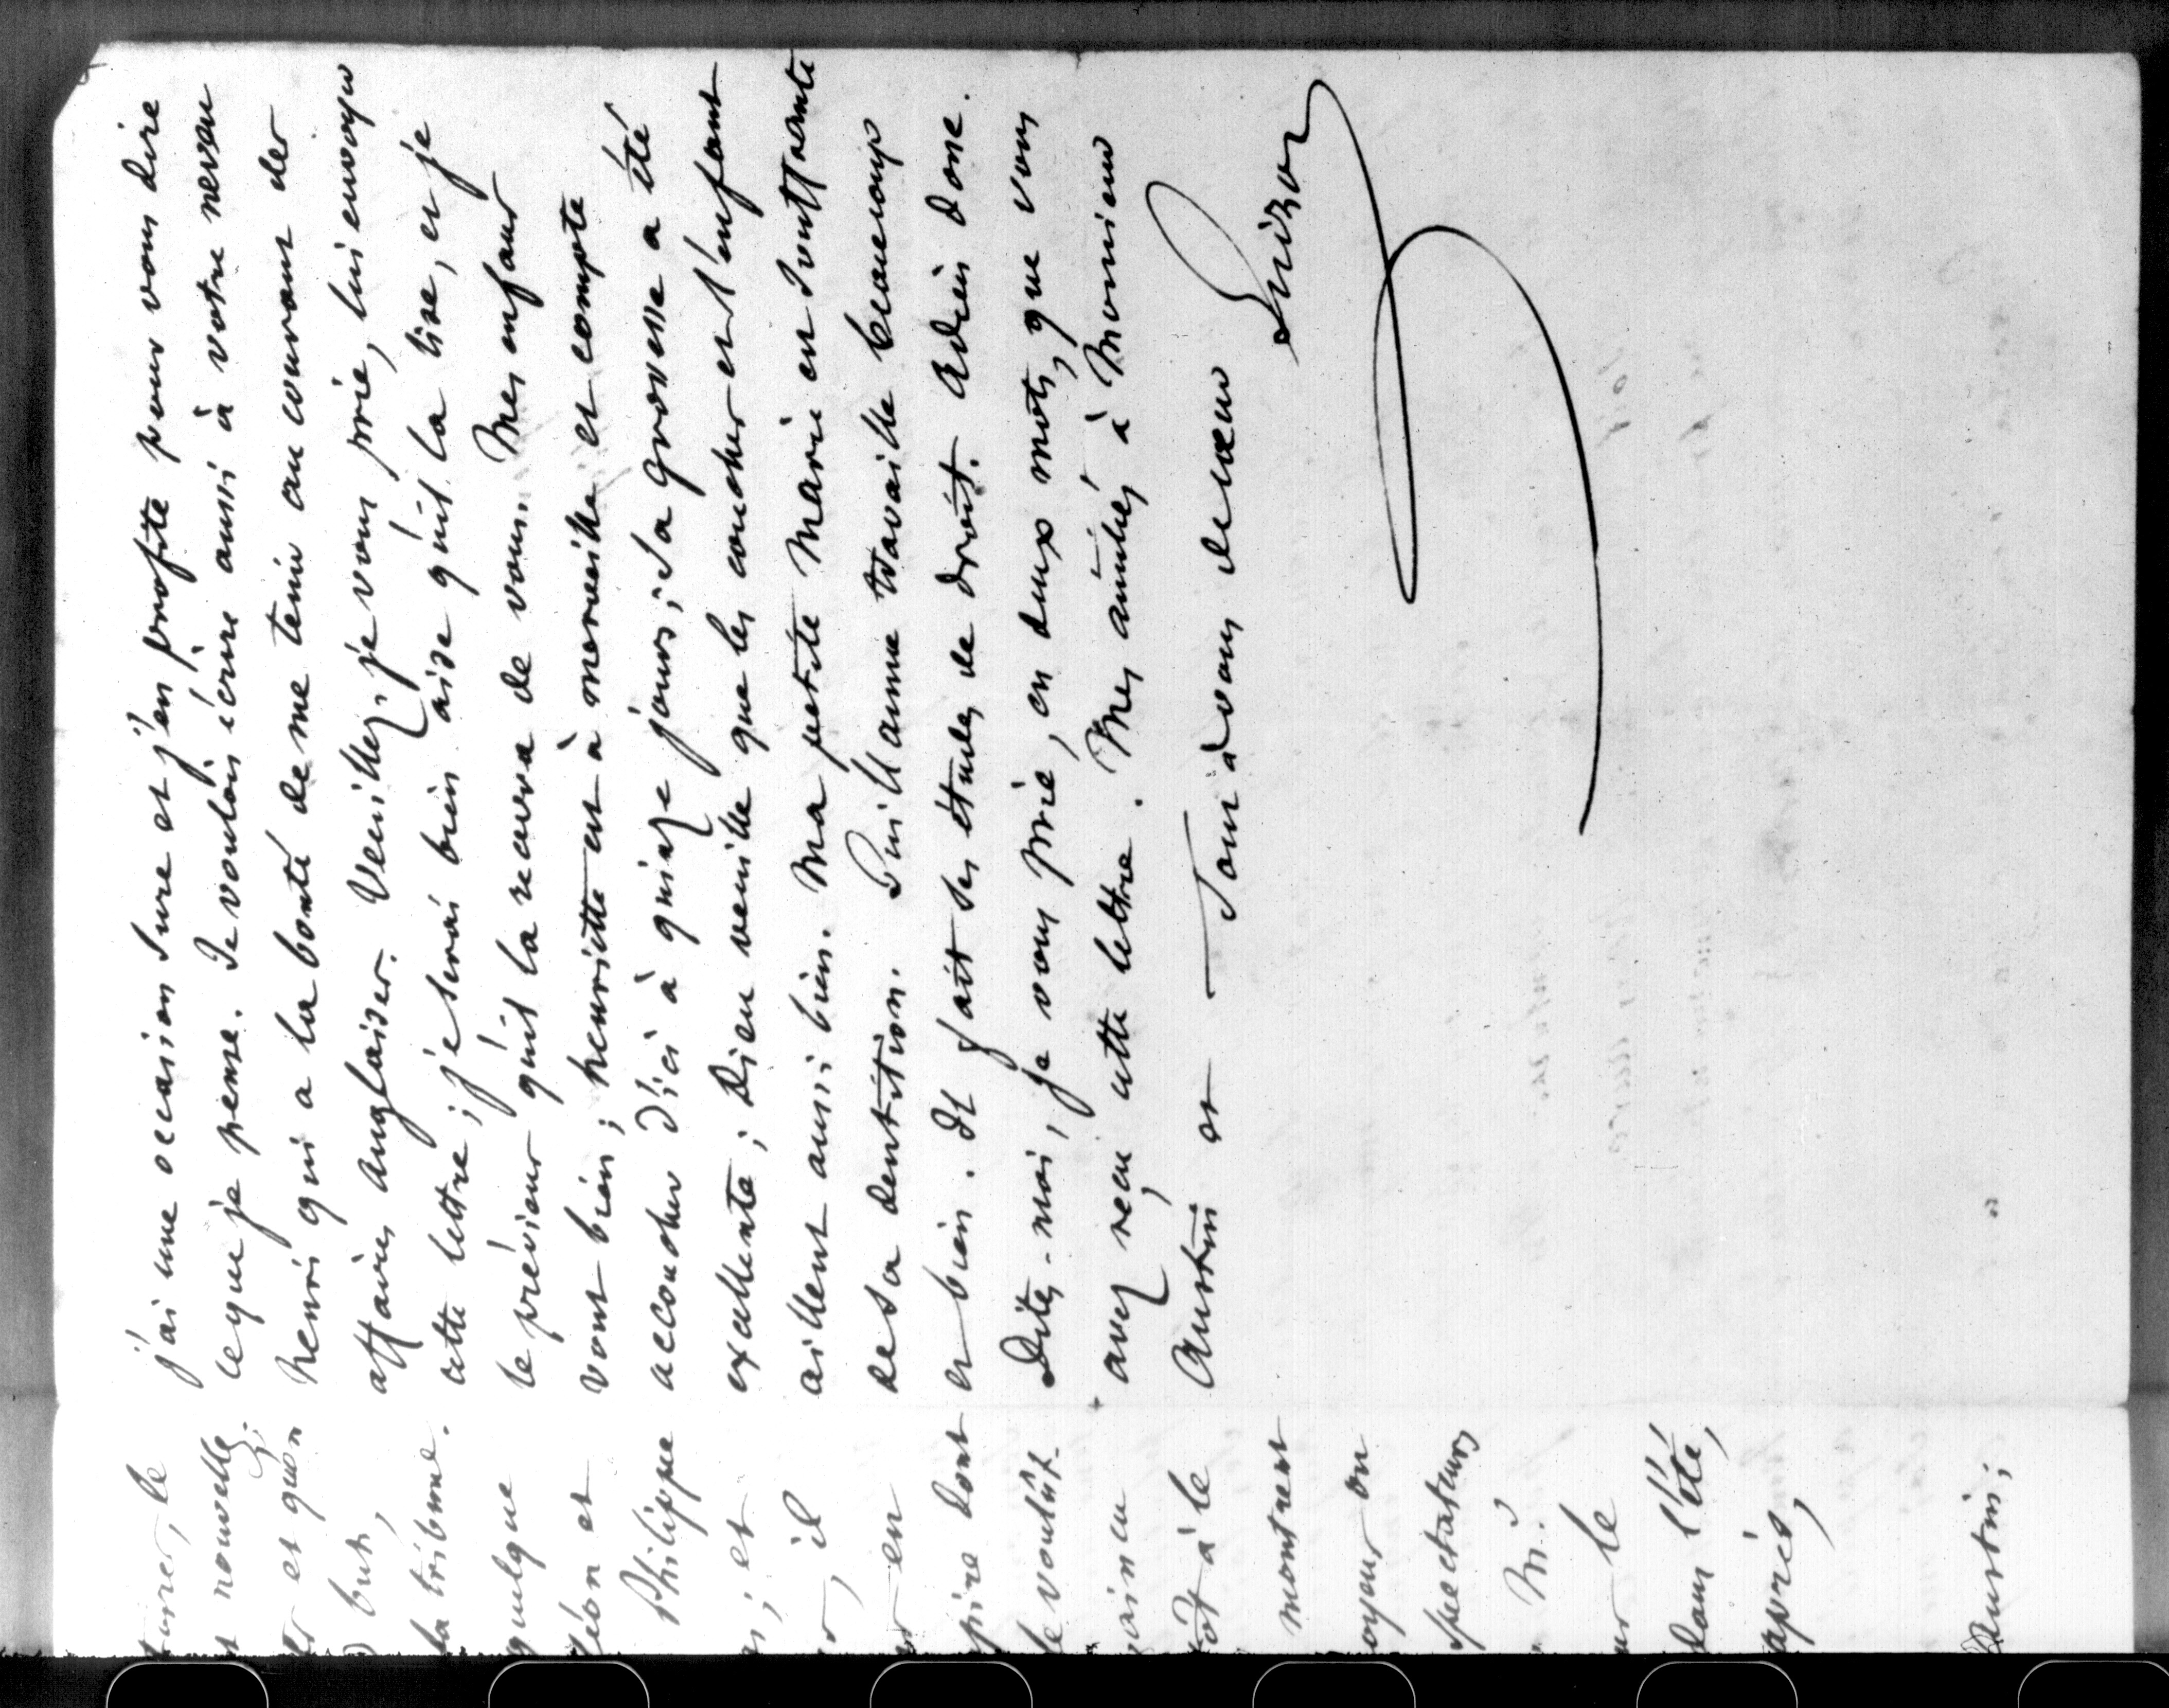 j'ai une occasion sure et j'en profite pour vous dire
ce que je pense. Je voulais écrire aussi à votre neveu
Henri qui a la bonté de me tenir au courant des
affaires anglaises. Veuillez, je vous prie, lui envoyer
cette lettre; je serai bien aise qu'il la lise, et je
le préviens qu'il la recevra de vous. Mes enfans
vont bien; henriette est à merveille et compte
accoucher d'ici à quinze jours; sa grossesse a été
excellente; Dieu veuille que les couches et l'enfant
aillent aussi bien. Ma petite Marie est souffrante
de sa dentition. Guillaume travaille beaucoup
et bien. Il fait ses études de droit. Adieu donc.
Dites-moi, je vous prie, en deux mots, que vous
avez reçu cette lettre. Mes amitiés à Monsieur
Austin et tout à vous de cœur
Guizot
le
nouvelle
et qu'on
but,
la tribune.
quelque
et
Philippe
; et
, il
en
dont
le voulût.
à le
montrent
on
spectateurs
M.
le
dans l'été,
après,
Austin;